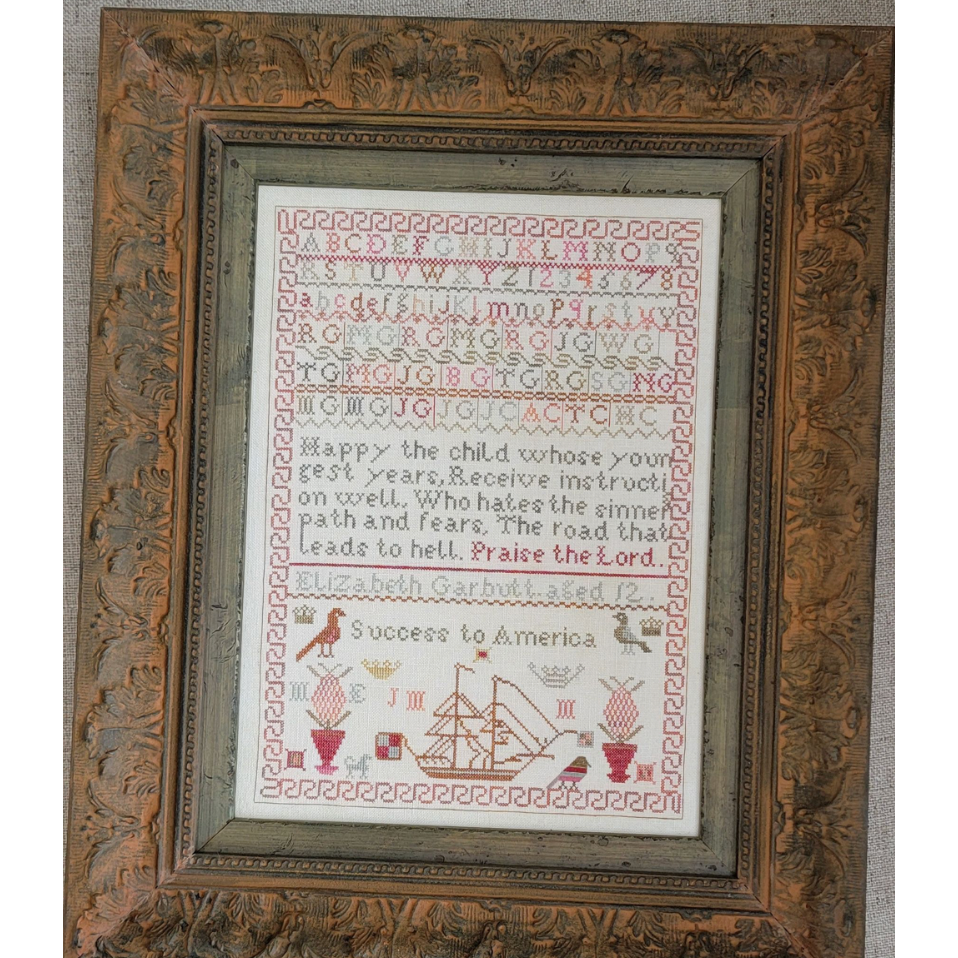 ABCDEFGHIJKLMNOPQ
RSTUVWXYZ12345678
abcdefghijklmnopqrstuvy
RG MG RG MG RG JG WG
TG MG JG BG TG RG SG MG
MG MG JG JG JC AC TC HC
Happy the child whose youn
gest years, Receive instructi
on well, Who hates the sinner
path and fears, The road that
leads to hell. Praise the Lord.
Elizabeth Garbutt aged 12.
Success to America
M E J M M